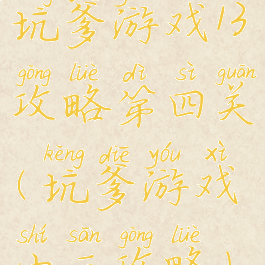 坑爹游戏13
gōng lüè dì sì guān
攻略第四关
kēng diē yóu xì
(坑爹游戏
shí sān gōng lüè